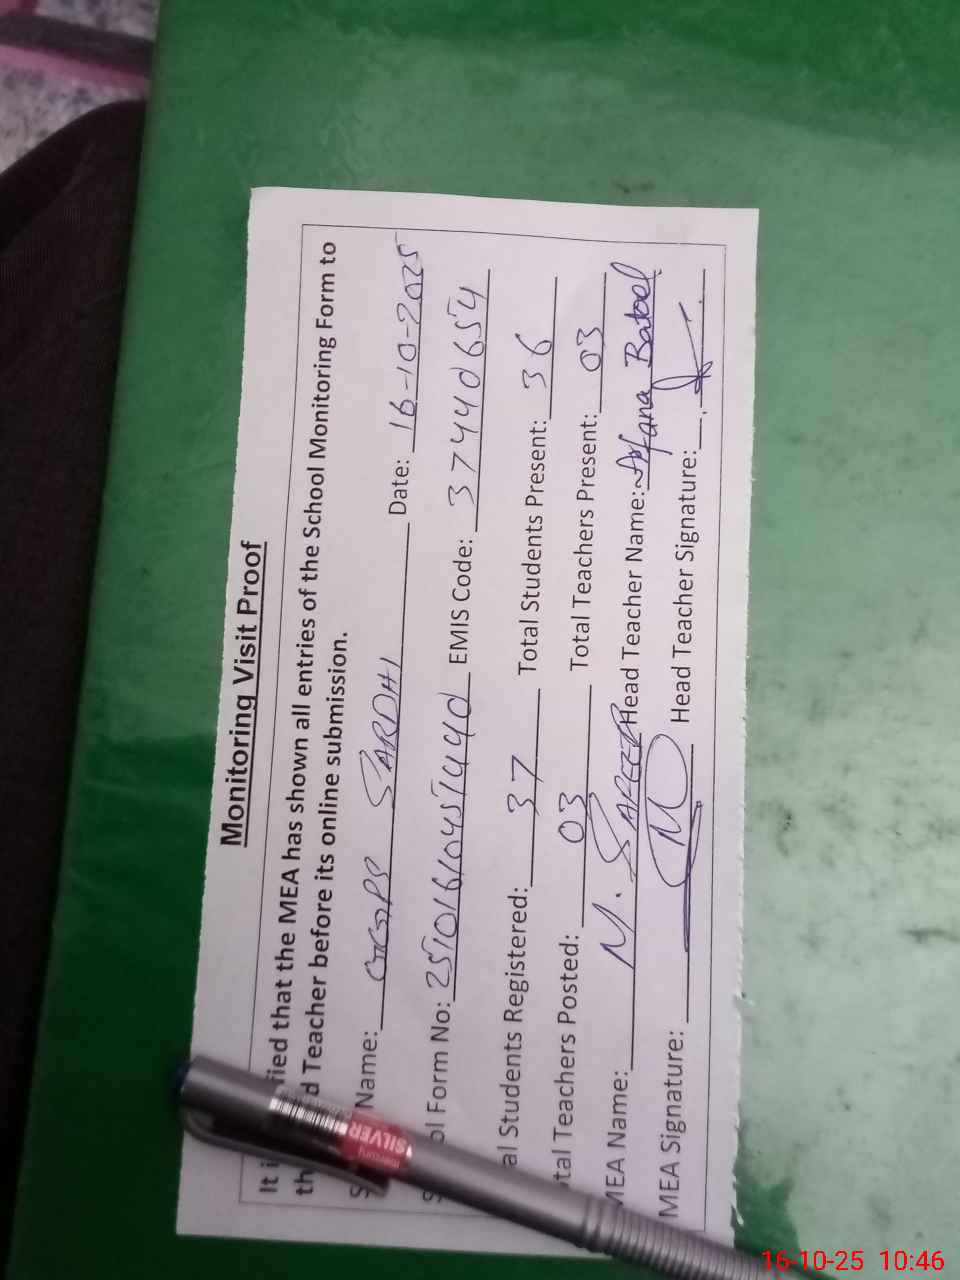 Monitoring Visit Proof
It i fied that the MEA has shown all entries of the School Monitoring Form to
th d Teacher before its online submission.
S Name: GGPS SARDHI Date: 16-10-2025
ol Form No: EMIS Code: 37440654
al Students Registered: 37 Total Students Present: 36
tal Teachers Posted: 03 Total Teachers Present: 03
MEA Name: M. SAFEER Head Teacher Name: Batool
MEA Signature: Head Teacher Signature:
mercury
SILVER
16-10-25 10:46